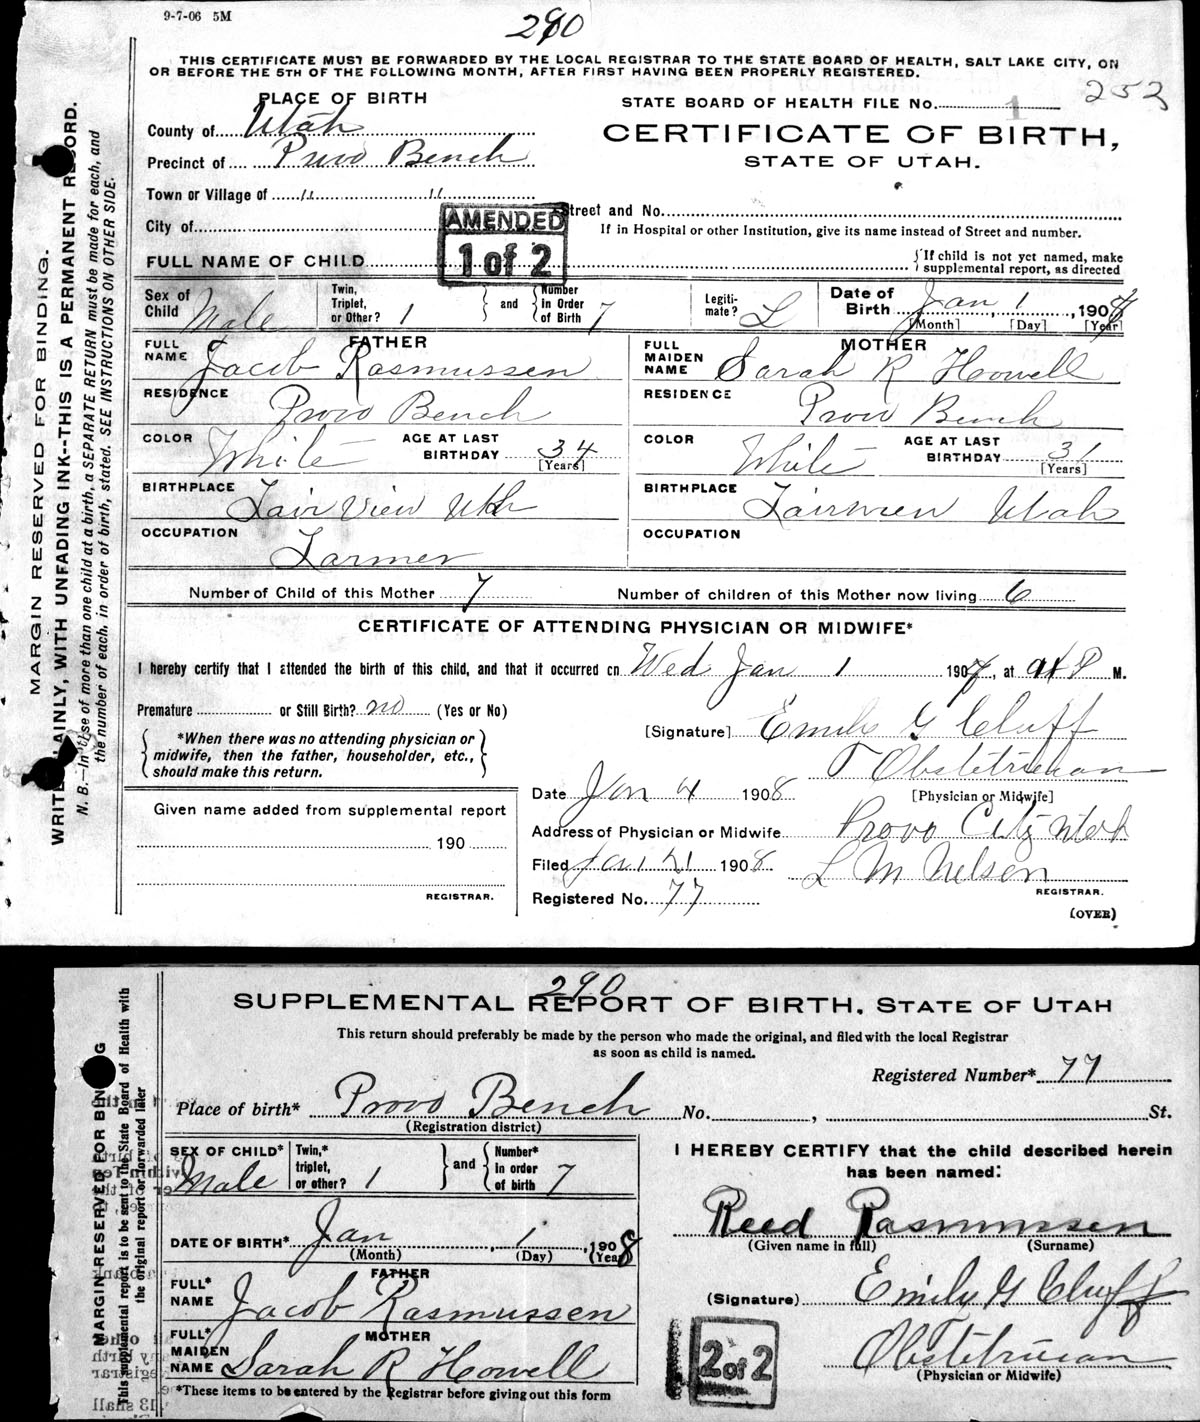 9-7-06 5M
290
THIS CERTIFICATE MUST BE FORWARDED BY THE LOCAL REGISTRAR TO THE STATE BOARD OF HEALTH, SALT LAKE CITY, ON
OR BEFORE THE 5TH OF THE FOLLOWING MONTH, AFTER FIRST HAVING BEEN PROPERLY REGISTERED.
MARGIN RESERVED FOR BINDING.
WRITE PLAINLY, WITH UNFADING INK--THIS IS A PERMANENT RECORD.
N. B.—In case of more than one child at a birth, a SEPARATE RETURN must be made for each, and
the number of each, in order of birth, stated. SEE INSTRUCTIONS ON OTHER SIDE.
PLACE OF BIRTH
County of Utah
Precinct of Provo Bench
Town or Village of " "
City of
STATE BOARD OF HEALTH FILE No. 1 252
CERTIFICATE OF BIRTH,
STATE OF UTAH.
Street and No.
If in Hospital or other Institution, give its name instead of Street and number.
AMENDED
1 of 2
FULL NAME OF CHILD
If child is not yet named, make
supplemental report, as directed
Sex of Child Male Twin, Triplet, or Other? 1 and Number in Order of Birth 7 Legitimate? L Date of Birth Jan 1, 1908
[Month] [Day] [Year]
FATHER MOTHER
FULL NAME Jacob Rasmussen FULL MAIDEN NAME Sarah R Howell
RESIDENCE Provo Bench RESIDENCE Provo Bench
COLOR White AGE AT LAST BIRTHDAY 34 [Years] COLOR White AGE AT LAST BIRTHDAY 31 [Years]
BIRTHPLACE Fair View Utah BIRTHPLACE Fairview Utah
OCCUPATION Farmer OCCUPATION
Number of Child of this Mother 7 Number of children of this Mother now living 6
CERTIFICATE OF ATTENDING PHYSICIAN OR MIDWIFE*
I hereby certify that I attended the birth of this child, and that it occurred on Wed Jan 1 190 , at P M.
Premature or Still Birth? no (Yes or No)
*When there was no attending physician or
midwife, then the father, householder, etc.,
should make this return.
[Signature] Emily G Cluff
Obstetrician
[Physician or Midwife]
Date Jan 4 1908
Given name added from supplemental report
190
REGISTRAR.
Address of Physician or Midwife Provo City Utah
Filed Jan 21 1908 L M Nelson
REGISTRAR.
Registered No. 77
(OVER)
290
SUPPLEMENTAL REPORT OF BIRTH, STATE OF UTAH
This return should preferably be made by the person who made the original, and filed with the local Registrar
as soon as child is named.
MARGIN RESERVED FOR BINDING
This supplemental report is to be sent to the State Board of Health with
the original report or forwarded later
Registered Number* 77
Place of birth* Provo Bench No. , St.
(Registration district)
SEX OF CHILD* Male Twin,* triplet, or other? 1 and Number* in order of birth 7
DATE OF BIRTH* Jan 1, 1908
(Month) (Day) (Year)
FATHER
FULL* NAME Jacob Rasmussen
MOTHER
FULL* MAIDEN NAME Sarah R Howell
*These items to be entered by the Registrar before giving out this form
I HEREBY CERTIFY that the child described herein
has been named:
Reed Rasmussen
(Given name in full) (Surname)
(Signature) Emily G Cluff
Obstetrician
(Physician or Midwife)
2 of 2